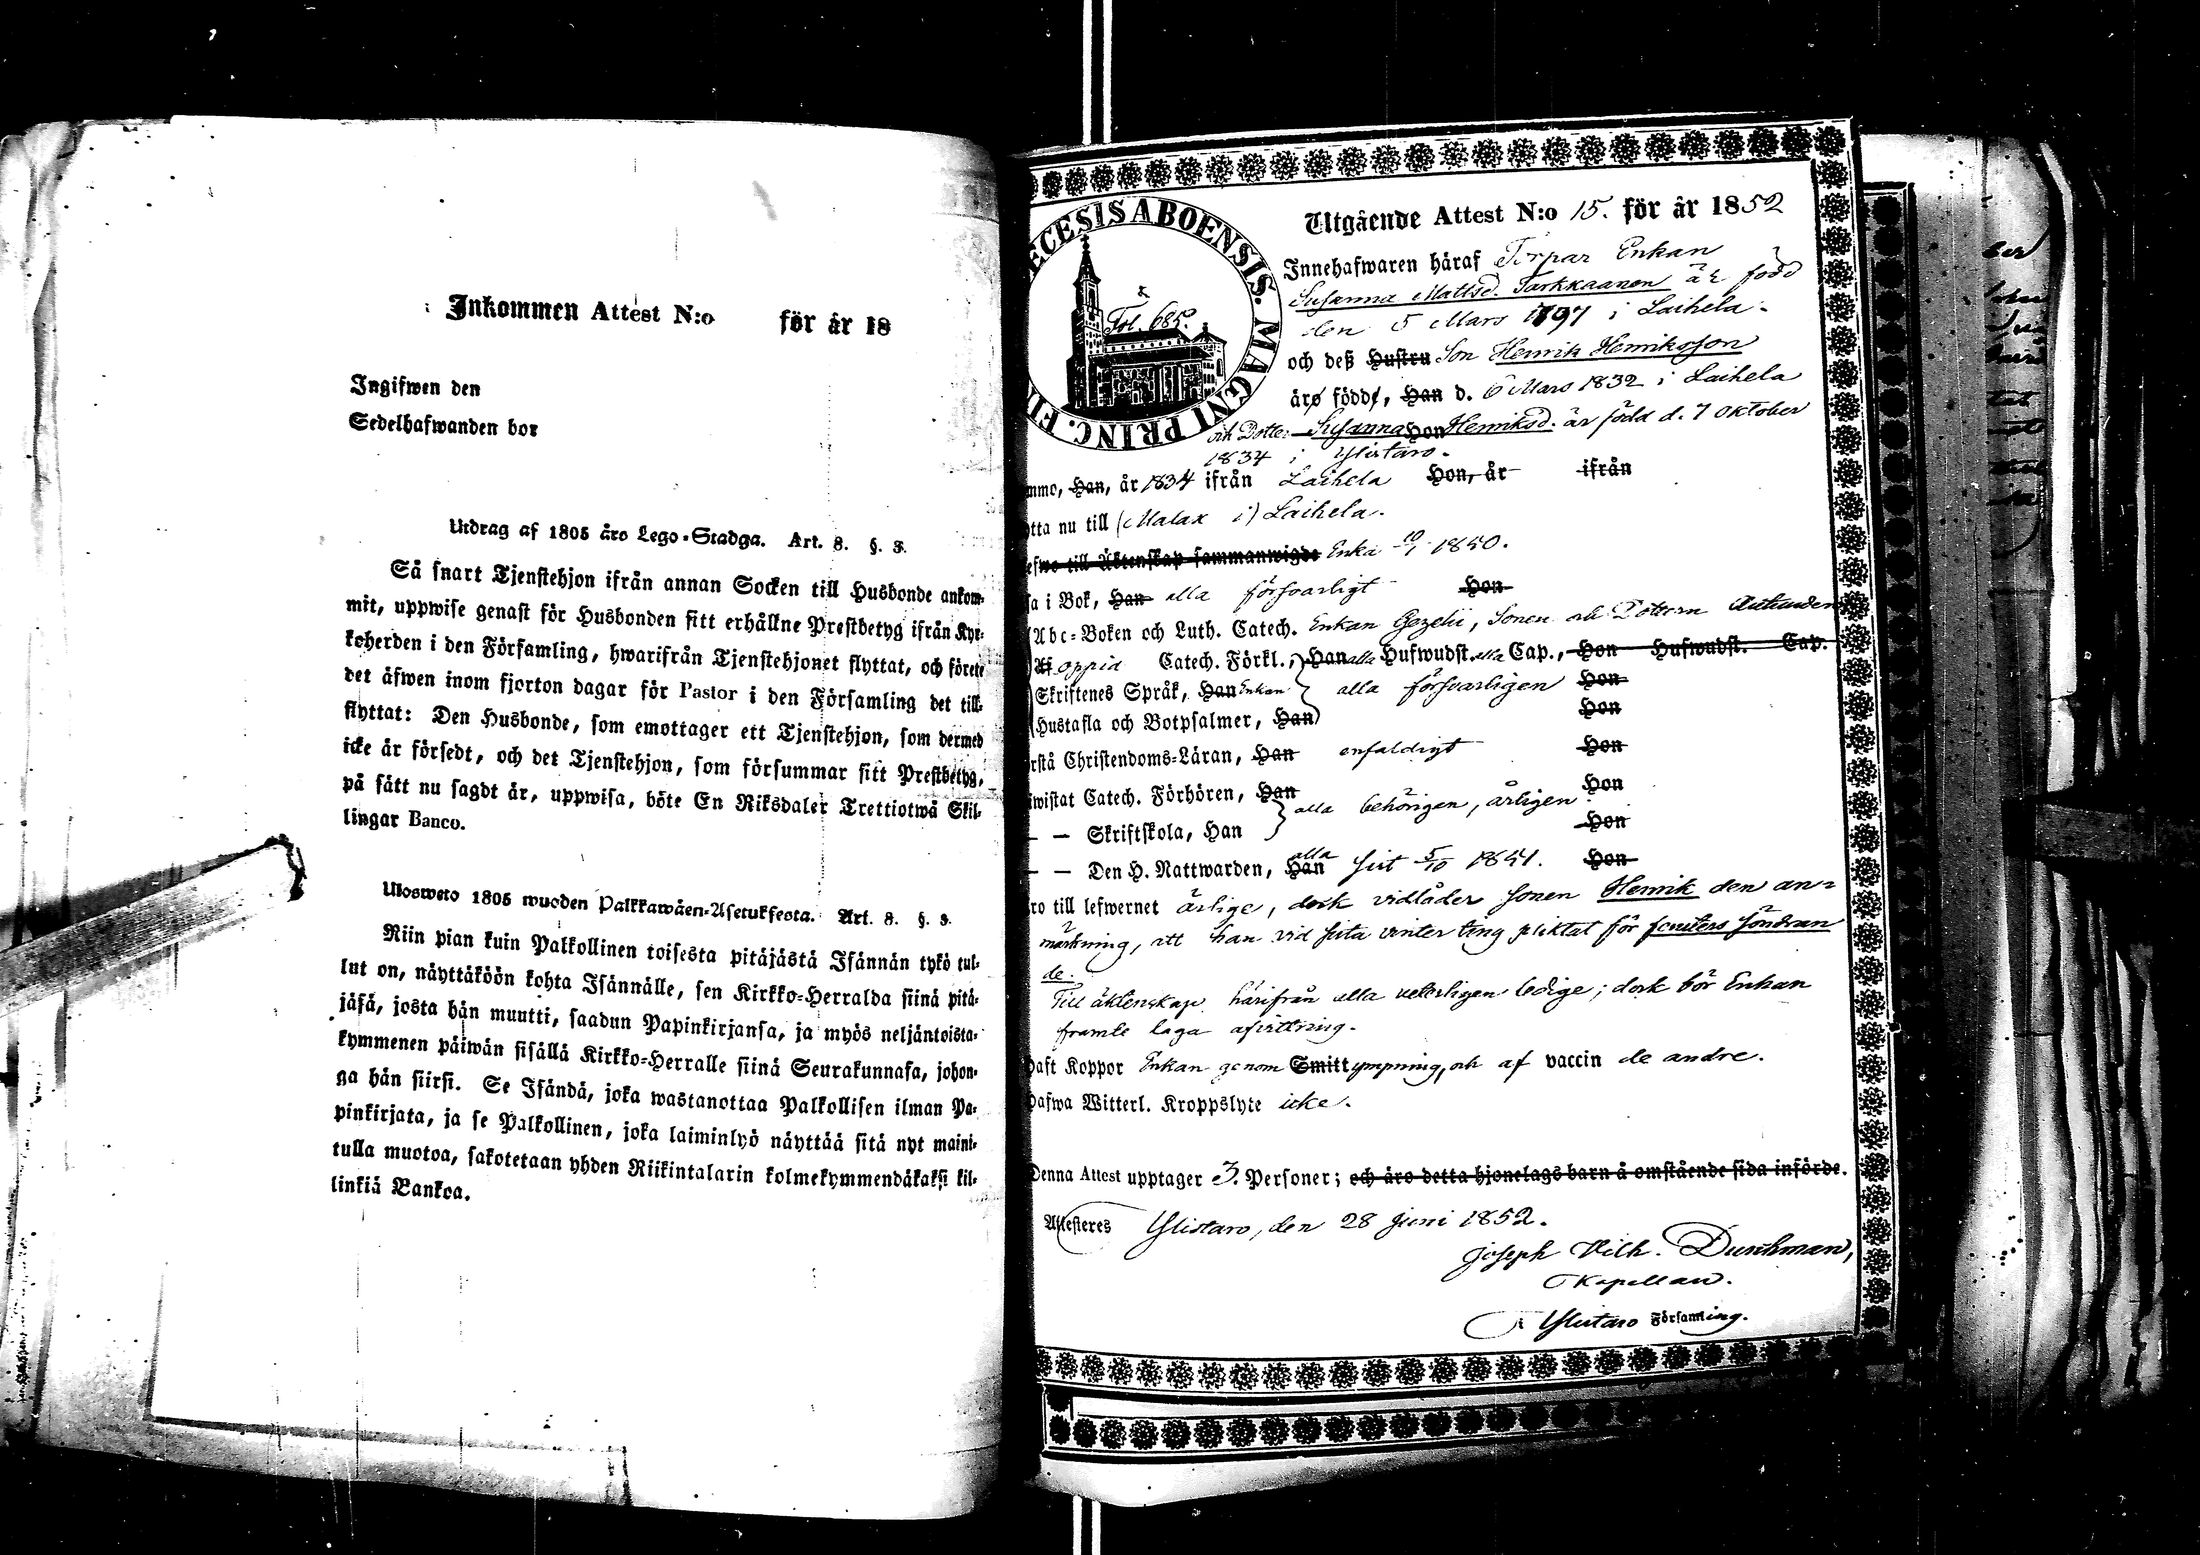 Inkommen Attest N:o för år 18
Ingifwen den
Sedelhafwanden bor
Utdrag af 1805 års Lego-Stadga. Art. 8. §. 3.
Så snart Tjenstehjon ifrån annan Socken till Husbonde ankom-
mit, uppwise genast för Husbonden sitt erhållne Prestbetyg ifrån Kyr-
koherden i den Församling, hwarifrån Tjenstehjonet flyttat, och förete
det äfwen inom fjorton dagar för Pastor i den Församling det till-
flyttat: Den Husbonde, som emottager ett Tjenstehjon, som dermed
icke är försedt, och det Tjenstehjon, som försummar sitt Prestbetyg,
på sätt nu sagdt är, uppwisa, böte En Riksdaler Trettiotwå Skil-
lingar Banco.
Ulosweto 1805 wuoden Palkkawäen-Asetuksesta. Art. 8. §. 3.
Niin pian kuin Palkollinen toisesta pitäjästä Isännän tykö tul-
lut on, näyttäköön kohta Isännälle, sen Kirkko-Herralda siinä pitä-
jäsä, josta hän muutti, saadun Papinkirjansa, ja myös neljäntoista-
kymmenen päiwän sisällä Kirkko-Herralle siinä Seurakunnasa, johon-
ga hän siirsi. Se Isändä, joka wastanottaa Palkollisen ilman Pa-
pinkirjata, ja se Palkollinen, joka laiminlyö näyttää sitä nyt maini-
tulla muotoa, sakotetaan yhden Riikintalarin kolmekymmendäkaksi kil-
linkiä Bankoa.
ECESIS ABOENSIS. MAGNI PRINC. FI
Fol. 685.
Utgående Attest N:o 15. för år 1852
Innehafwaren häraf Torpar Enkan
Susanna Mattsd. Tarkkaanen är född
den 5 Mars 1797 i Laihela.
och deß Hustru Son Henrik Henriksson
äro födde, Han d. 6 Mars 1832 i Laihela
och Dotter Susanna Hon Henriksd. är född d. 7 Oktober
1834 i Ylistaro.
mmo, Han, år 1834 ifrån Laihela Hon, år ifrån
tta nu till (Malax i) Laihela.
efwo till Äktenskap sammanwigde Enka 10/1 1850.
sa i Bok, Han alla försvarligt Hon
Abc-Boken och Luth. Catech. Enkan Gezelii, Sonen och Dottern
oppid Catech. Förkl., Han alla Hufwudst. alla Cap., Hon Hufwudst. Cap.
Skriftenes Språk, Han Enkan alla försvarligen Hon
Hustafla och Botpsalmer, Han Hon
rstå Christendoms-Läran, Han enfaldigt Hon
iwistat Catech. Förhören, Han Hon
alla behörigen, årligen
— — Skriftskola, Han Hon
— — Den H. Nattwarden, Han alla sist 5/10 1851. Hon
ro till lefwernet ärlige, dock vidlåder sonen Henrik den an-
märkning, att han vid sista vinter ting pliktat för fensters söndran
de.
Till äktenskap härifrån alla veterligen ledige; dock bör Enkan
framte laga afvittring.
haft Koppor Enkan genom Smittympning, och af vaccin de andre.
hafwa Witterl. Kroppslyte icke.
Denna Attest upptager 3. Personer; och äro detta hjonelags barn å omstående sida införde.
Attesteres Ylistaro, den 28 Juni 1852.
Joseph Vilh. Durchman,
Kapellan.
i Ylistaro Församling.